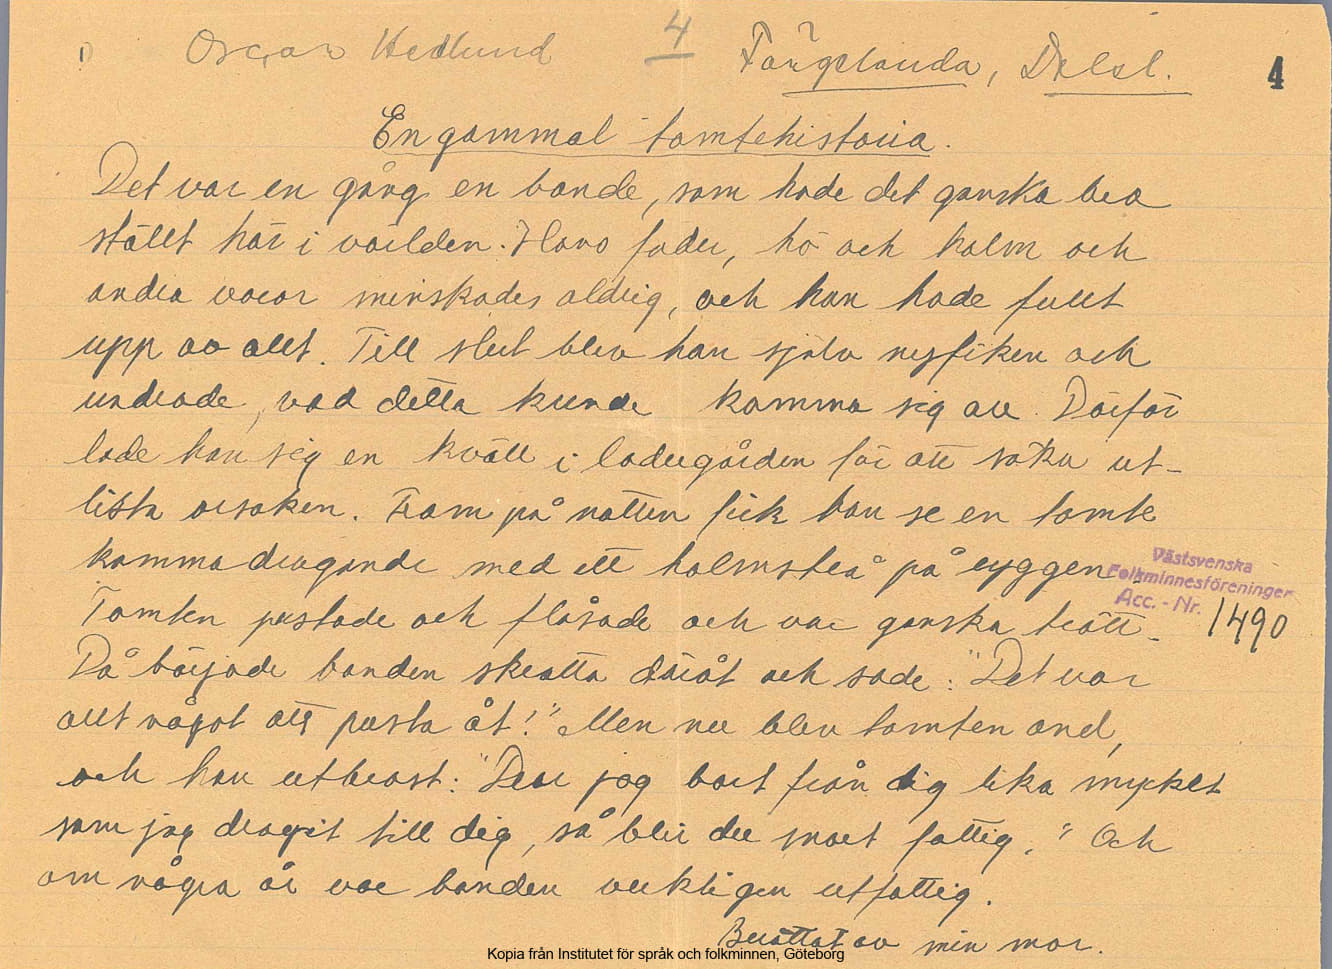 1) Oscar Hedlund 4 Färgelanda, Dalsl. 4
En gammal tomtehistoria.
Det var en gång en bonde, som hade det ganska bra
ställt här i världen. Hans foder, hö och halm och
andra varor minskades aldrig, och han hade fullt
upp av allt. Till slut blev han själv nyfiken och
undrade, vad detta kunde komma sig av. Därför
lade han sig en kväll i ladugården för att söka ut-
lista orsaken. Fram på natten fick han se en tomte
komma dragande med ett halmstrå på ryggen.
Tomten pustade och flåsade och var ganska trött.
Då började bonden skratta däråt och sade: "Det var
allt något att pusta åt!" Men nu blev tomten ond,
och han utbrast: "Drar jag bort från dig lika mycket
som jag dragit till dig, så blir du snart fattig." Och
om några år var bonden verkligen utfattig.
Berättat av min mor.
Västsvenska
Folkminnesföreningen
Acc. - Nr. 1490
Kopia från Institutet för språk och folkminnen, Göteborg